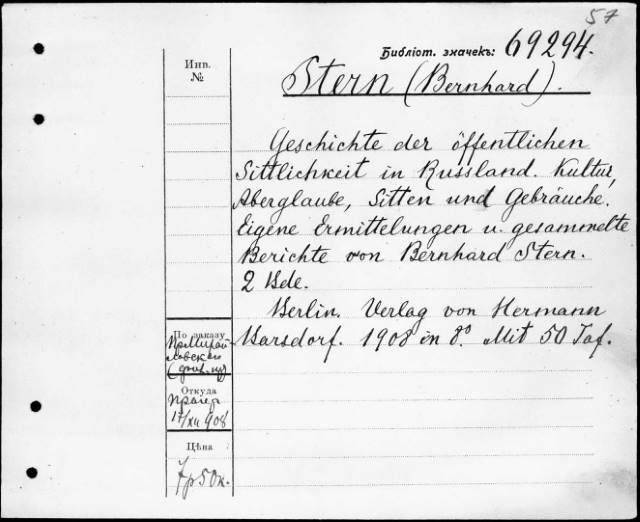 57
Библіот. значекъ: 69294.
Инв.
№
Stern (Bernhard).
Geschichte der öffentlichen
Sittlichkeit in Russland. Kultur,
Aberglaube, Sitten und Gebräuche.
Eigene Ermittelungen u. gesammelte
Berichte von Bernhard Stern.
2 Bde.
Berlin. Verlag von Hermann
Barsdorf. 1908 in 8º. Mit 50 Taf.
По заказу
Откуда
17/XII 908
Цѣна
7 р 50 к.